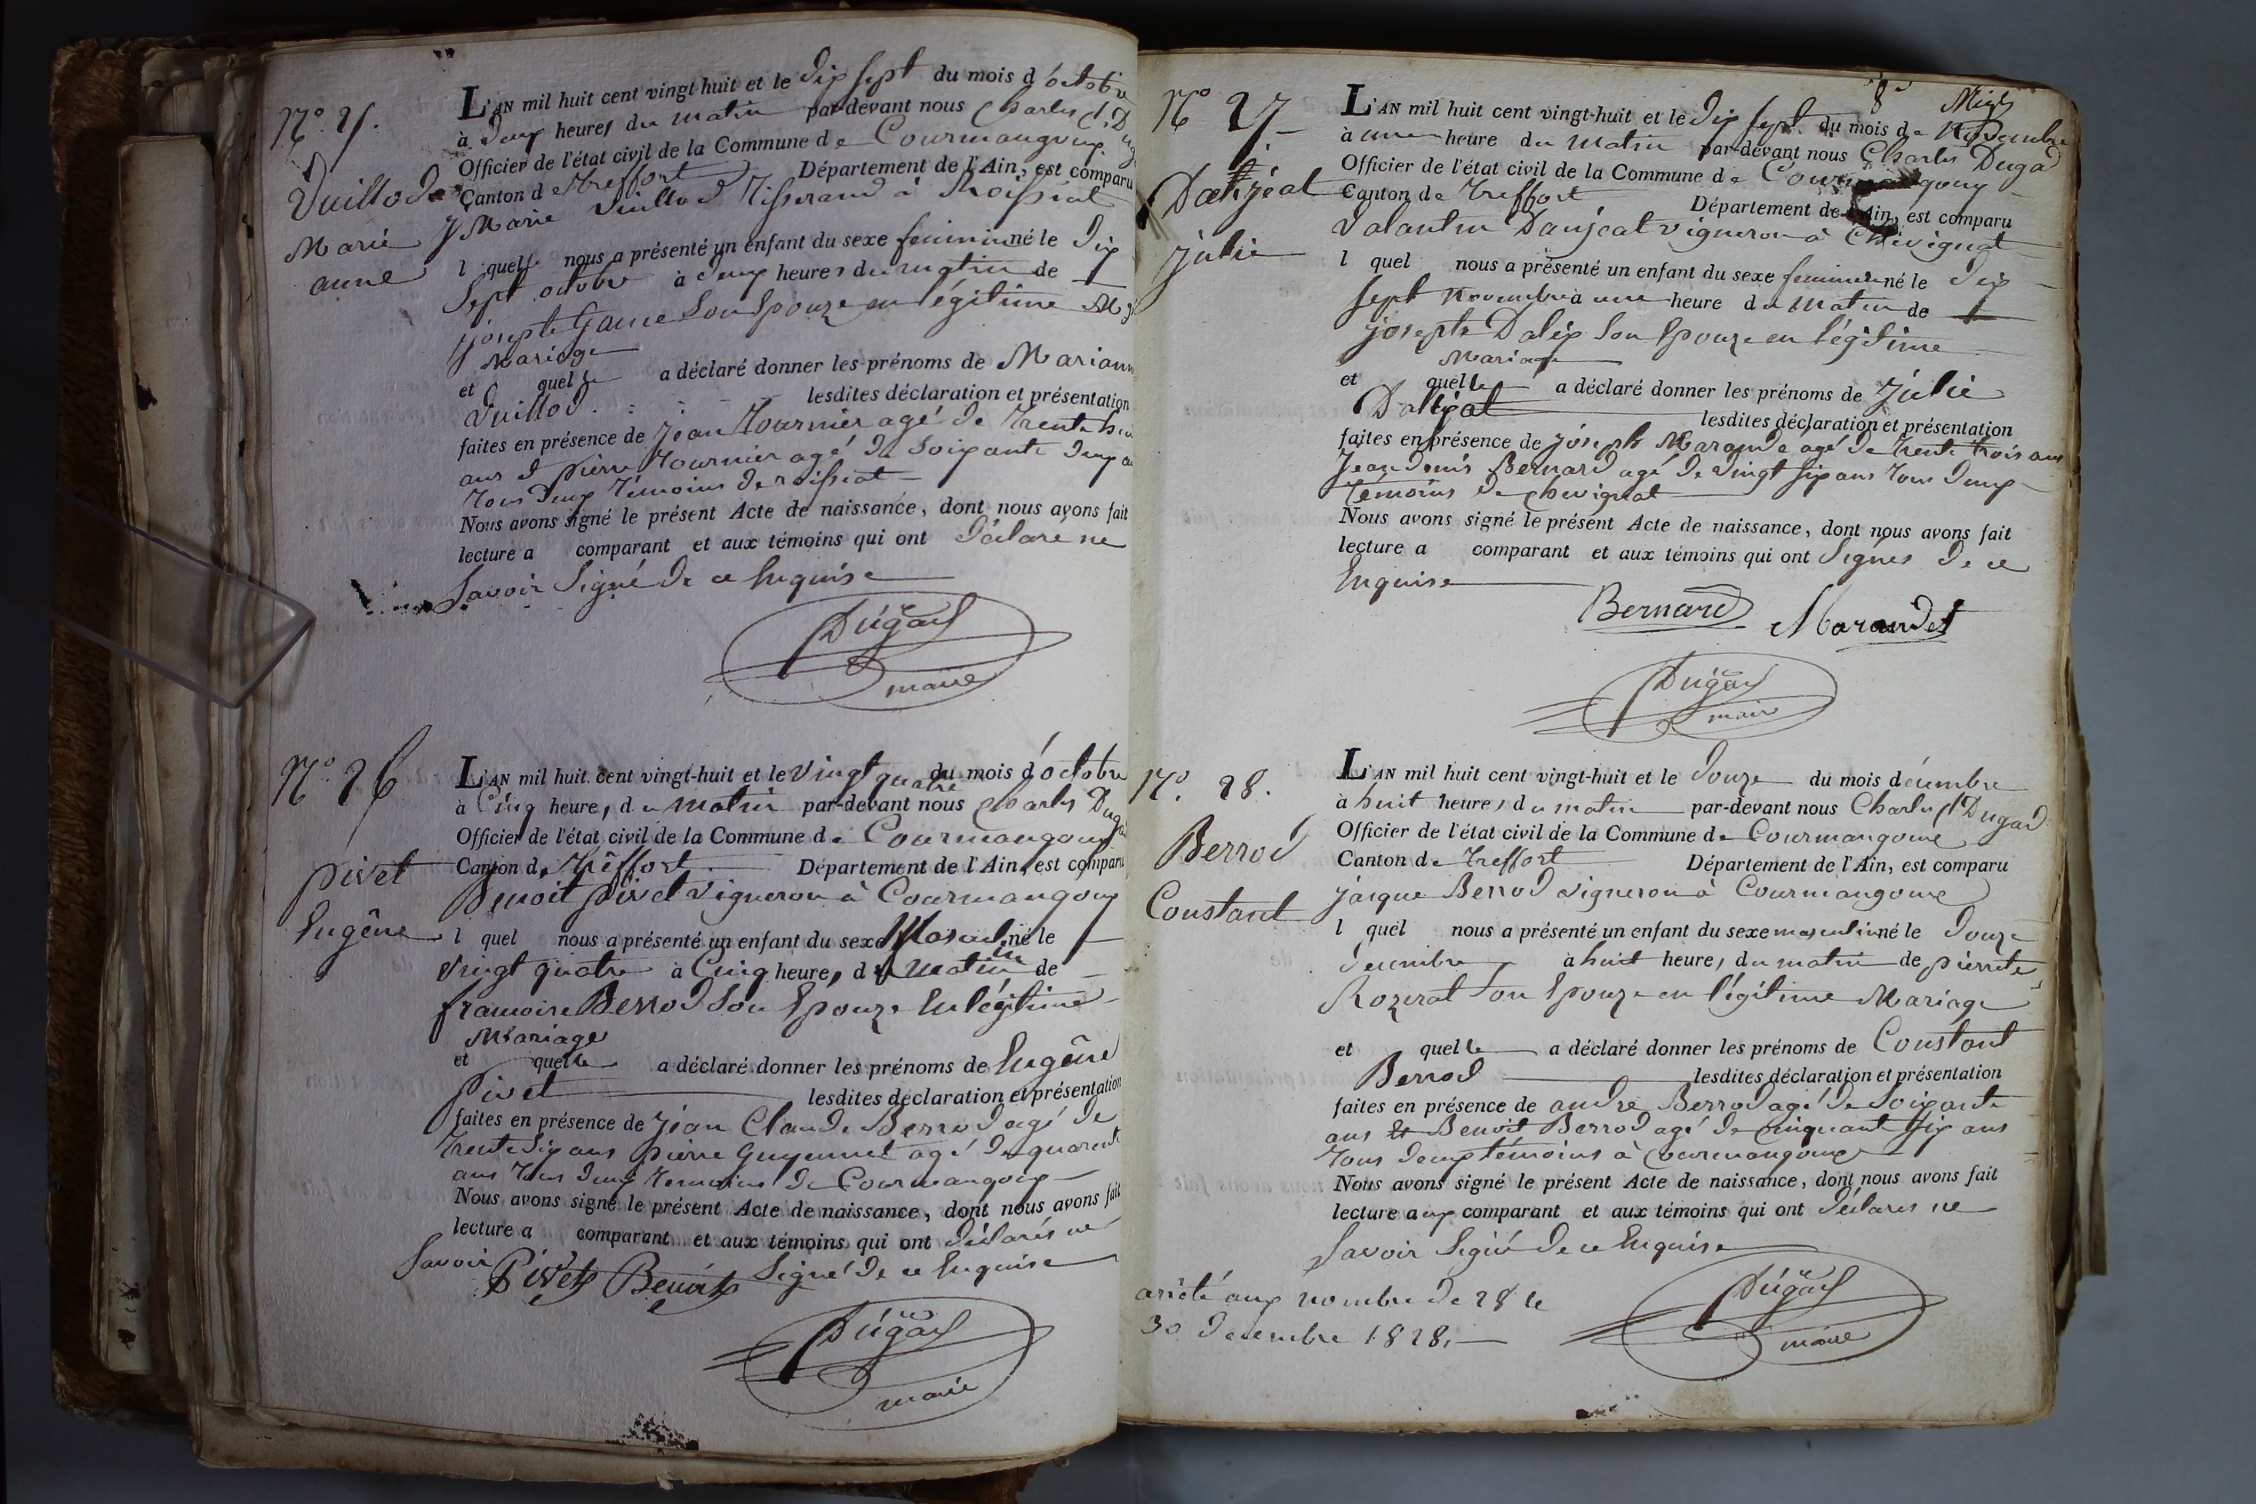 N.o 25.
Vuillod
Marie
anne
L'AN mil huit cent vingt-huit et le dix sept du mois d'octobre
à deux heures du matin par-devant nous Charles
Officier de l'état civil de la Commune de Courmangoux
Canton de Treffort Département de l'Ain, est comparu
Marie Vuillod Tisserand à Roissiat
l quelle nous a présenté un enfant du sexe feminin né le dix
sept octobre à deux heures du matin de
josephte Game son Epouze en légitime
Mariage
et quelle a déclaré donner les prénoms de Marianne
Vuillod. lesdites déclaration et présentation
faites en présence de jean Tournier agé de Trente huit
ans et pierre Tournier agé de soixante deux
Tous deux Témoins de roissiat
Nous avons signé le présent Acte de naissance, dont nous avons fait
lecture a comparant et aux témoins qui ont déclaré ne
savoir signé de ce Enquise
Dugad
maire
N.o 26
pivet
Eugêne
L'AN mil huit cent vingt-huit et le vingt quatre du mois d'octobre
à Cinq heures, du matin par-devant nous Charles Dugad
Officier de l'état civil de la Commune de Courmangoux
Canton de Treffort Département de l'Ain, est comparu
Benoit pivet vigneron à Courmangoux
l quel nous a présenté un enfant du sexe Masculin né le
vingt quatre à Cinq heures, du matin de
francoise Berrod son Epouze En légitime
Mariage
et quelle a déclaré donner les prénoms de Eugêne
Pivet lesdites déclaration et présentation
faites en présence de jéan Claude Berrod agé de
Trente six ans pierre Guyennet agé de quarente
ans Tous deux Temoins de Courmangoux
Nous avons signé le présent Acte de naissance, dont nous avons fait
lecture a comparant et aux témoins qui ont déclarés ne
savoir Signé de ce Enquise
Pivet Benoit
Dugad
maire
8.e
N.o 27
Dalizeat
julie
L'AN mil huit cent vingt-huit et le dix sept du mois de Novembre
à une heure du matin par-devant nous Charles Dugad
Officier de l'état civil de la Commune de Courmangoux
Canton de Treffort Département de l'Ain, est comparu
Valantin Danjeat vigneron à Chevignat
l quel nous a présenté un enfant du sexe feminin né le dix
sept Novembre à une heure du matin de
josephte Dalix son Epouze en légitime
Mariage
et quelle a déclaré donner les prénoms de Julie
lesdites déclaration et présentation
faites en présence de joseph Marande agé de trente trois ans
jean denis Bernard agé de vingt six ans Tous deux
témoins de chevignat
Nous avons signé le présent Acte de naissance, dont nous avons fait
lecture a comparant et aux témoins qui ont Signés de ce
Enquise
Bernard Marandet
Dugad
maire
N.o 28.
Berrod
Constant
L'AN mil huit cent vingt-huit et le douze du mois décembre
à huit heures, du matin par-devant nous Charles Dugad
Officier de l'état civil de la Commune de Courmangoux
Canton de Treffort Département de l'Ain, est comparu
jacque Berrod vigneron à Courmangoux
l quel nous a présenté un enfant du sexe masculin né le douze
decembre à huit heures, du matin de pierrete
Rozerat son Epouze en légitime Mariage
et quelle a déclaré donner les prénoms de Constant
Berrod lesdites déclaration et présentation
faites en présence de andre Berrod agé de soixante
ans et Benoit Berrod agé de cinquante six ans
Tous deux témoins à Courmangoux
Nous avons signé le présent Acte de naissance, dont nous avons fait
lecture aux comparant et aux témoins qui ont déclares ne
savoir Signé de ce Enquise
Dugad
maire
arrêté aux nombre de 28 le
30 decembre 1828.